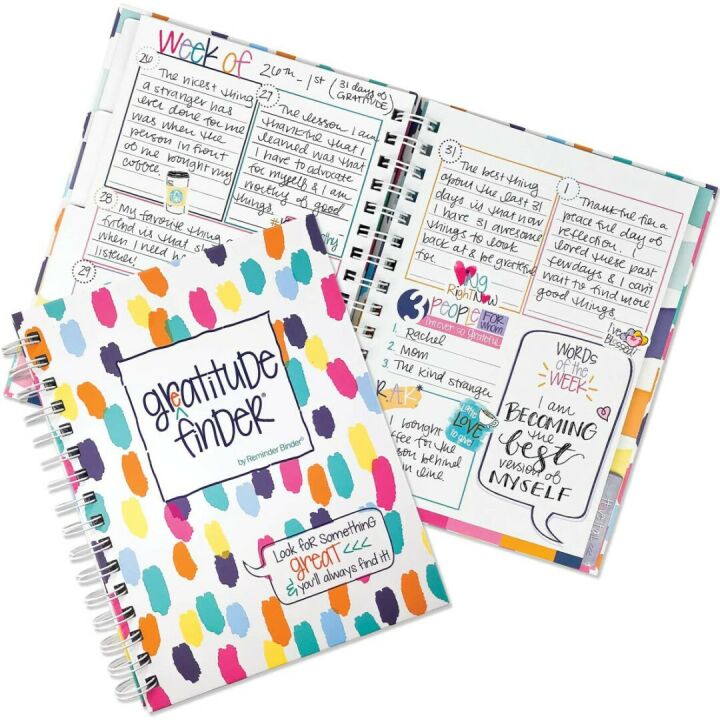 Week of 26th - 1st (31 days of GRATITUDE)
26
The nicest thing
a stranger has
ever done for me
was when the
person in front
of me bought my
coffee.
27
The lesson I am
thankful that I
learned was that
I have to advocate
for myself & I am
worthy of good
things.
28
My favorite thing
when I need
listener!
29
31
The best thing
about the last 31
days is that now
I have 31 awesome
things to look
back at & be grateful
for.
1
Thankful for a
peaceful day of
reflection. I
loved these past
few days & I can't
wait to find more
good things.
Right Now
3 PEOPLE FOR WHOM
I'm ever so grateful
1. Rachel
2. Mom
3. The kind stranger
RAK*
I bought
coffee for the
person behind
me in line
little LOVE to give!
I've Blessed!
WORDS
of the
WEEK
I am
BECOMING
the
best
version of
MYSELF
great
gratitude
finder®
by Reminder Binder®
Look for something
great <<<
& you'll always find it!